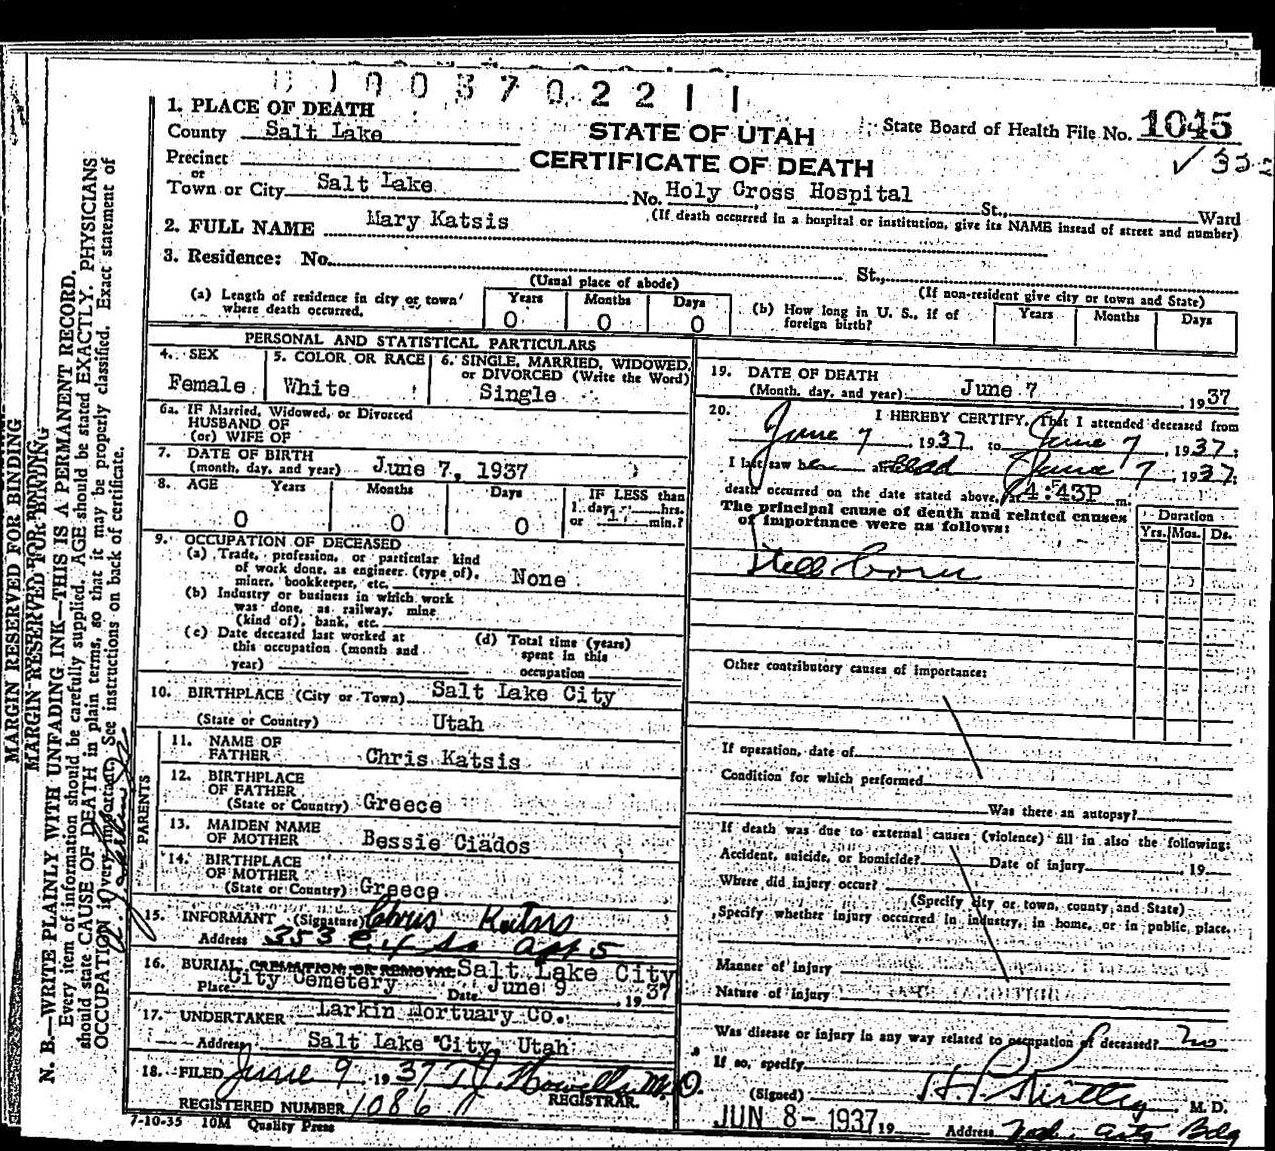 1. PLACE OF DEATH
County Salt Lake
STATE OF UTAH
CERTIFICATE OF DEATH
State Board of Health File No. 1045
Precinct
or
Town or City Salt Lake No. Holy Cross Hospital St., Ward
(If death occurred in a hospital or institution, give its NAME instead of street and number)
2. FULL NAME Mary Katsis
3. Residence: No. St.,
(Usual place of abode)
(If non-resident give city or town and State)
(a) Length of residence in city or town where death occurred. Years 0 Months 0 Days 0
(b) How long in U. S., if of foreign birth? Years Months Days
PERSONAL AND STATISTICAL PARTICULARS
4. SEX
Female
5. COLOR OR RACE
White
6. SINGLE, MARRIED, WIDOWED,
or DIVORCED (Write the Word)
Single
6a. IF Married, Widowed, or Divorced
HUSBAND OF
(or) WIFE OF
7. DATE OF BIRTH
(month, day, and year) June 7, 1937
8. AGE Years Months Days IF LESS than
1 day, hrs.
or min.?
0 0 0
9. OCCUPATION OF DECEASED
(a) Trade, profession, or particular kind
of work done, as engineer (type of),
miner, bookkeeper, etc. None
(b) Industry or business in which work
was done, as railway, mine
(kind of), bank, etc.
(c) Date deceased last worked at
this occupation (month and
year)
(d) Total time (years)
spent in this
occupation
10. BIRTHPLACE (City or Town) Salt Lake City
(State or Country) Utah
PARENTS
11. NAME OF
FATHER Chris Katsis
12. BIRTHPLACE
OF FATHER
(State or Country) Greece
13. MAIDEN NAME
OF MOTHER Bessie Ciados
14. BIRTHPLACE
OF MOTHER
(State or Country) Greece
15. INFORMANT (Signature) Chris Katsis
Address 353 E 4 So Apt 5
16. BURIAL, CREMATION, OR REMOVAL Salt Lake City
Place City Cemetery Date June 9 1937
17. UNDERTAKER Larkin Mortuary Co.
Address Salt Lake City, Utah
18. FILED June 9 1937 T J Howells M.D.
REGISTRAR.
REGISTERED NUMBER 1086
7-10-35 10M Quality Press
19. DATE OF DEATH
(Month, day, and year) June 7, 1937
20. I HEREBY CERTIFY, That I attended deceased from
June 7, 1937 to June 7, 1937;
I last saw her dead June 7, 1937;
death occurred on the date stated above, at 4:43P m.
The principal cause of death and related causes
of importance were as follows:
Duration
Yrs. Mos. Ds.
Still born
Other contributory causes of importance:
If operation, date of
Condition for which performed
Was there an autopsy?
If death was due to external causes (violence) fill in also the following:
Accident, suicide, or homicide? Date of injury , 19
Where did injury occur?
(Specify city or town, county and State)
Specify whether injury occurred in industry, in home, or in public place.
Manner of injury
Nature of injury
Was disease or injury in any way related to occupation of deceased? No
If so, specify
(Signed) H. P. Kirtley M. D.
JUN 8-1937 19 Address Arts Bldg
MARGIN RESERVED FOR BINDING
MARGIN RESERVED FOR BINDING
N. B.—WRITE PLAINLY WITH UNFADING INK—THIS IS A PERMANENT RECORD.
Every item of information should be carefully supplied. AGE should be stated EXACTLY. PHYSICIANS
should state CAUSE OF DEATH in plain terms, so that it may be properly classified. Exact statement of
OCCUPATION is very important. See instructions on back of certificate.